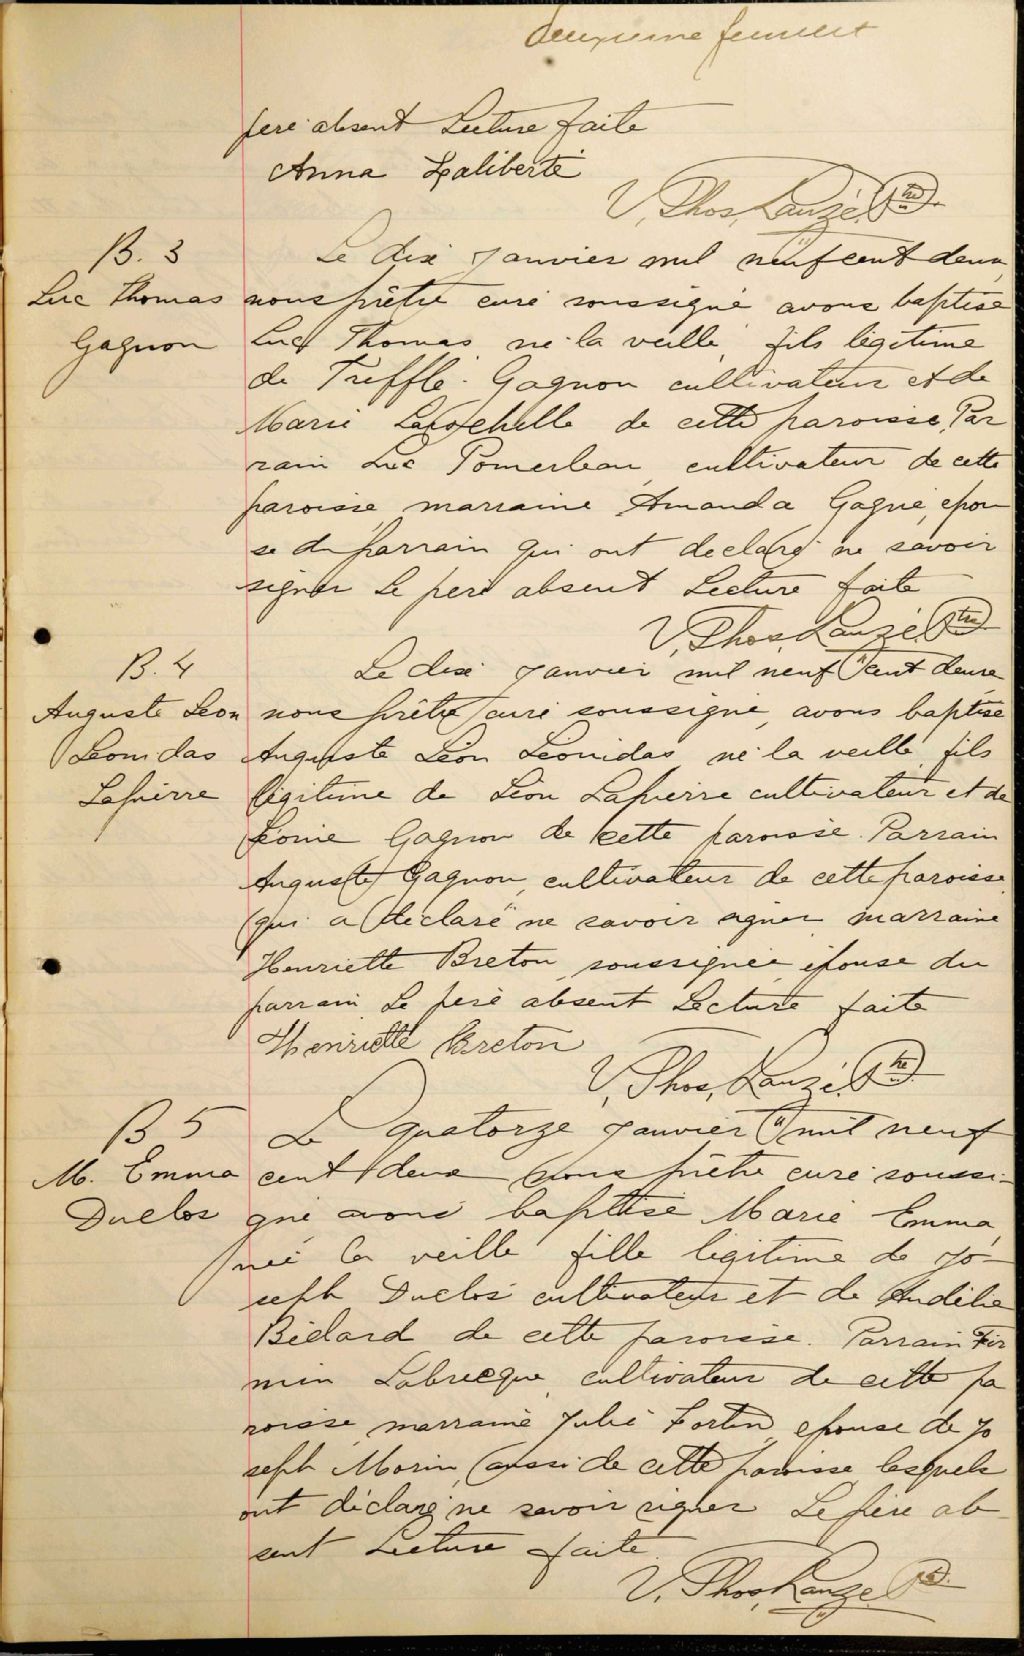 deuxieme feuillet
pere absent Lecture faite
Anna Laliberté
V. Thos. Lauzé, Ptre
B. 3
Luc Thomas
Gagnon
Le dix Janvier mil neuf cent deux
nous prêtre curé soussigné avons baptisé
Luc Thomas né la veille, fils légitime
de Treffle Gagnon cultivateur et de
Marie Larochelle de cette paroisse, Par
rain Luc Pomerleau cultivateur de cette
paroisse marraine Amanda Gagné, epou
se du parrain qui ont declaré ne savoir
signer Le pere absent Lecture faite
V. Thos. Lauzé Ptre
B. 4
Auguste Leon
Leonidas
Lapierre
Le dix Janvier mil neuf cent deux
nous prêtre curé soussigné, avons baptisé
Auguste Léon Léonidas né la veille, fils
légitime de Léon Lapierre cultivateur et de
Léonie Gagnon de cette paroisse. Parrain
Auguste Gagnon, cultivateur de cette paroisse
qui a declaré ne savoir signer marraine
Henriette Breton soussignée épouse du
parrain Le pere absent Lecture faite
Henriette Breton
V. Thos. Lauzé. Ptre
B 5
M. Emma
Duclos
Le quatorze Janvier mil neuf
cent deux nous prêtre curé soussi-
gné avons baptisé Marie Emma,
née la veille fille légitime de Jo-
seph Duclos cultivateur et de Audélie
Bédard de cette paroisse. Parrain Fir
min Labrecque cultivateur de cette pa
roisse marraine Julie Fortin, epouse de Jo
seph Morin, aussi de cette paroisse, lesquels
ont déclaré ne savoir signer Le père ab-
sent Lecture faite
V. Thos. Lauzé Ptre